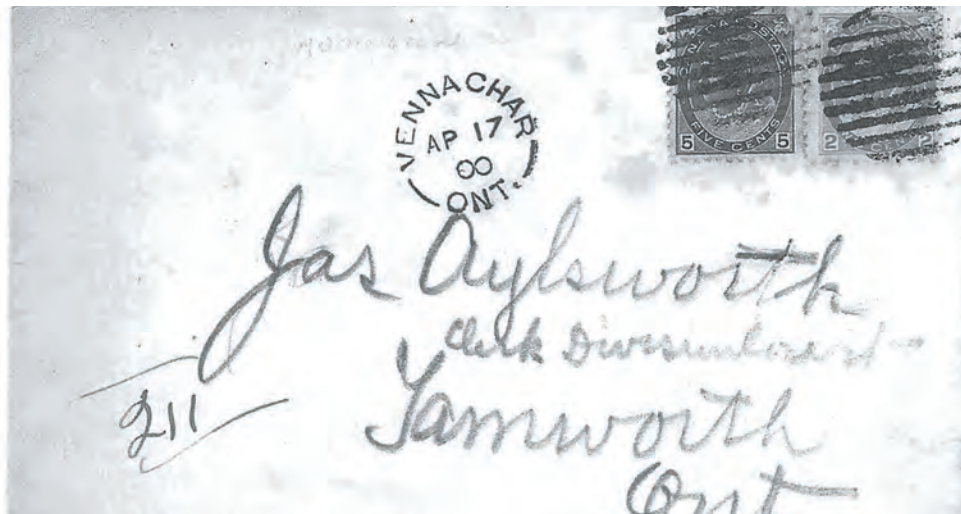 VENNACHAR
AP 17
00
ONT.
5 FIVE CENTS 5
2 CENTS 2
Jas Aylsworth
Clerk Division Court
Tamworth
Ont
211